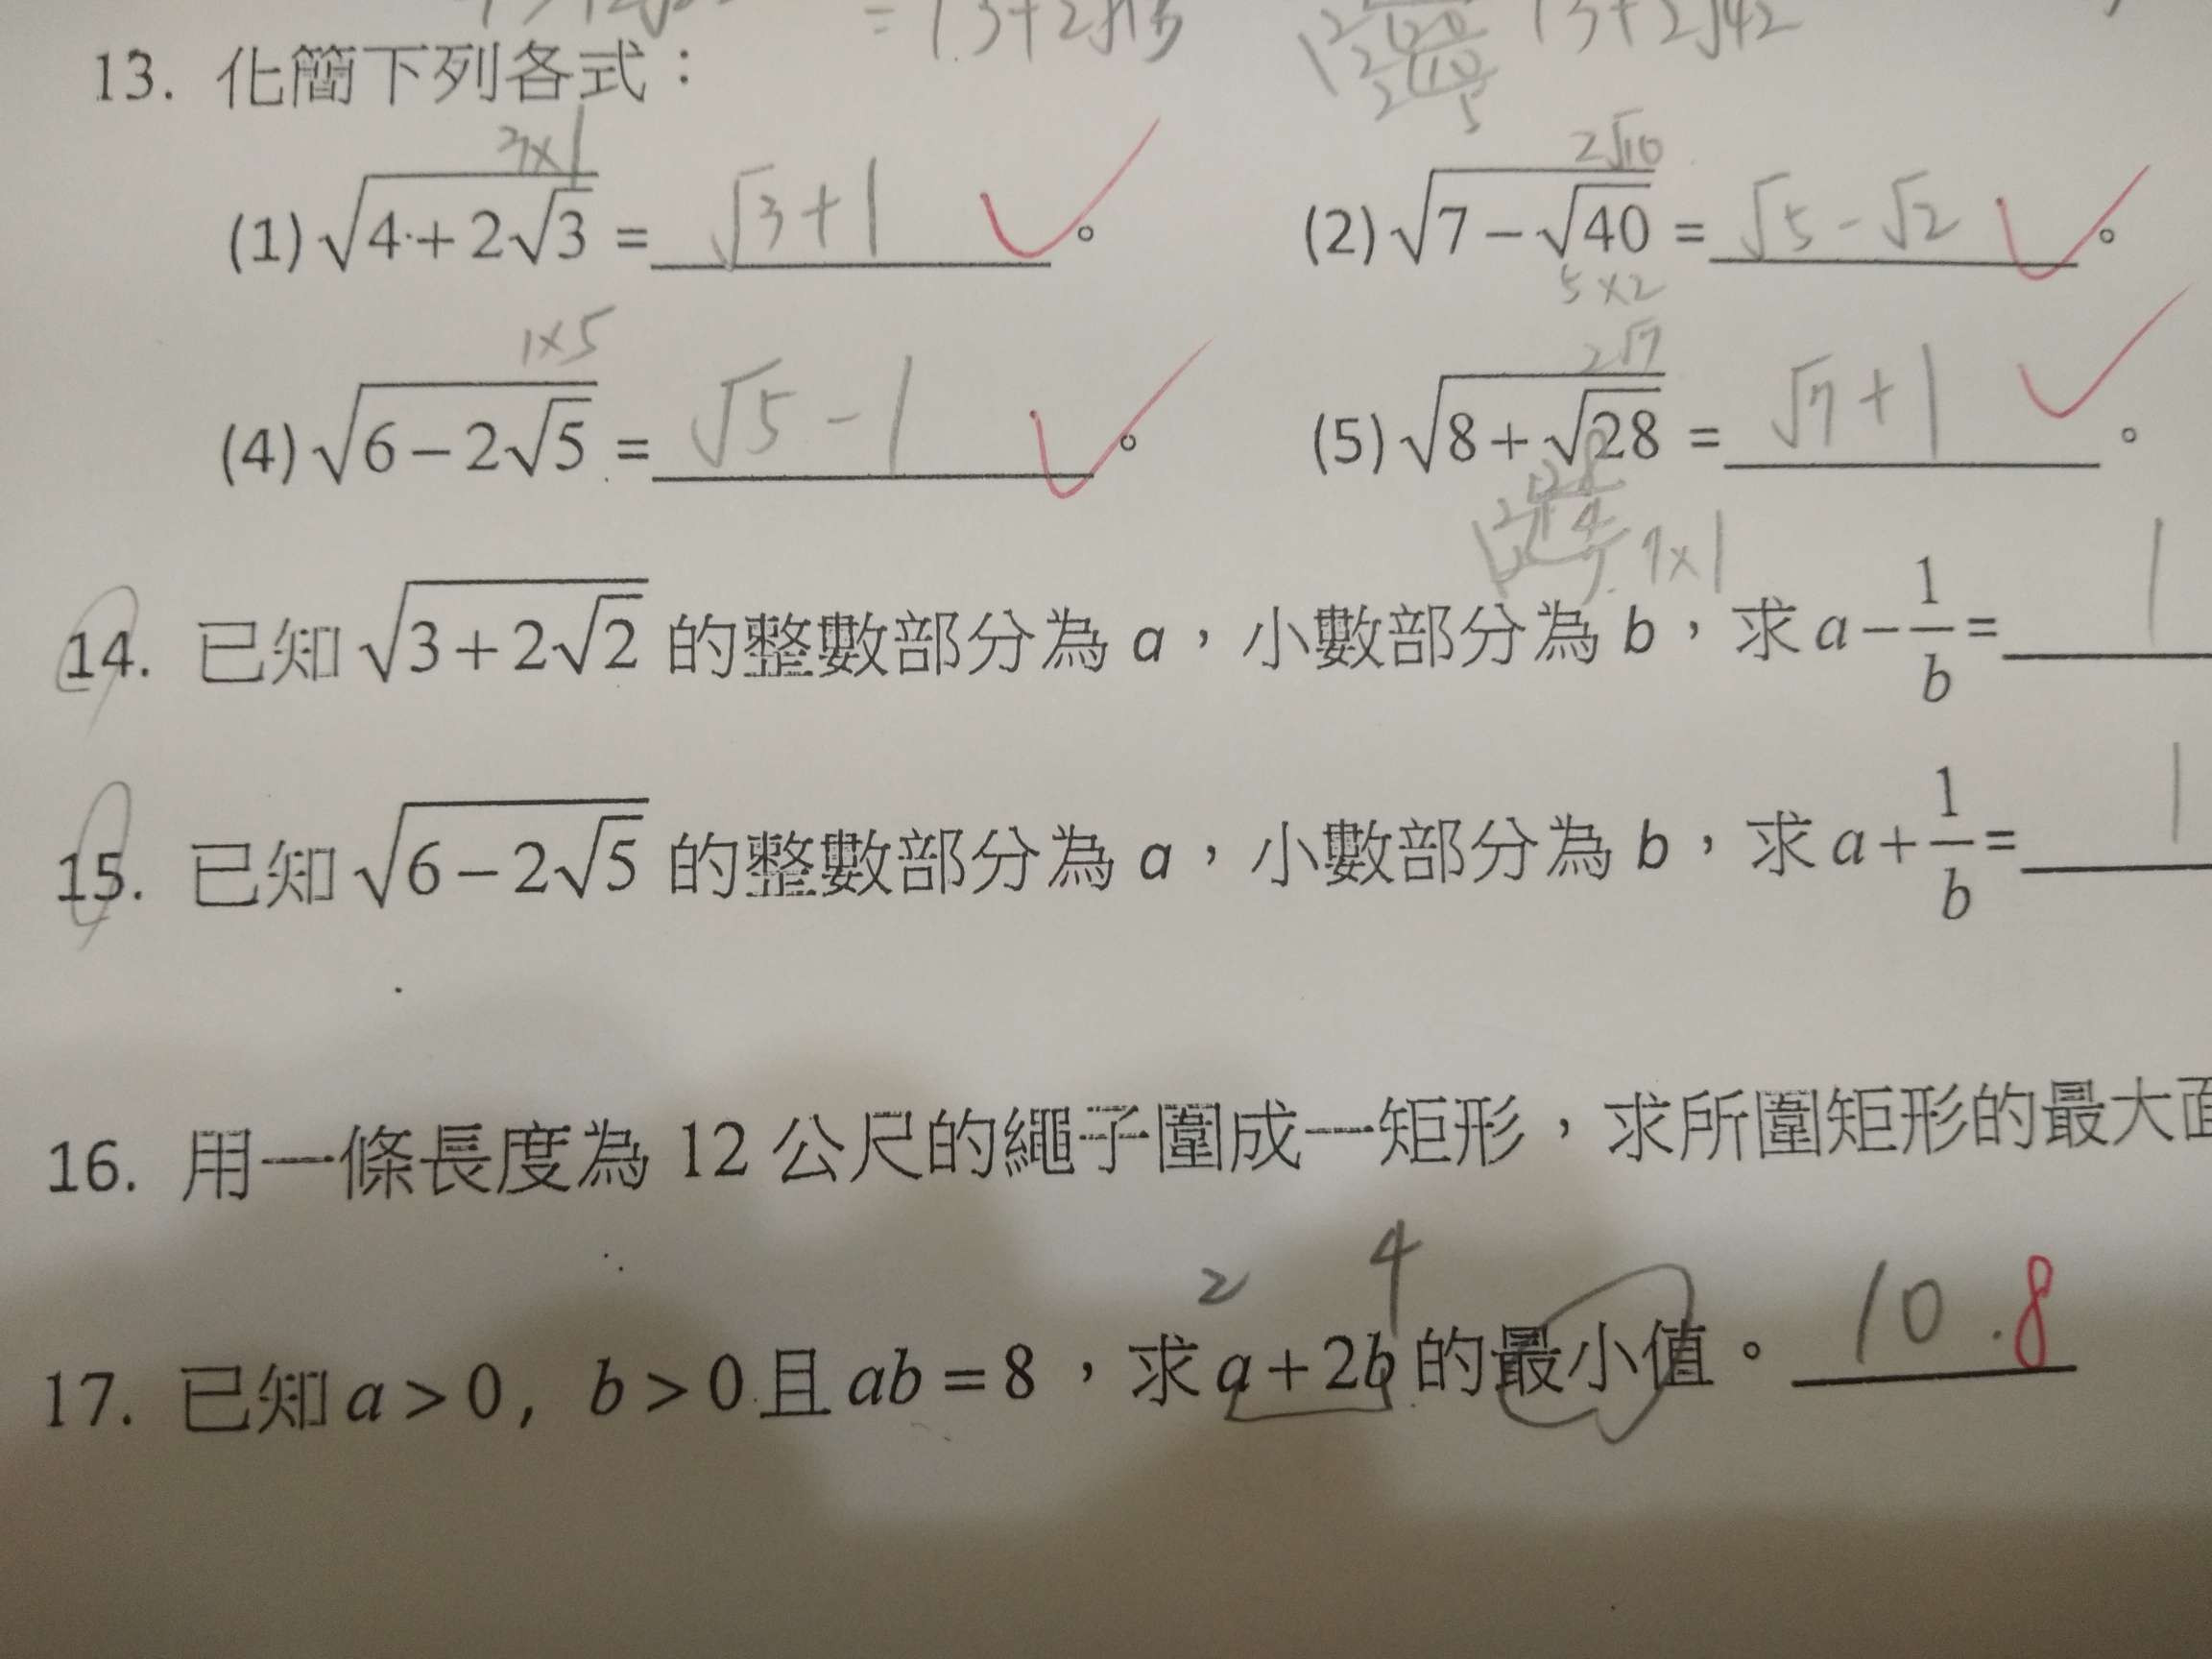 = 13+2√13 13+2√42
13. 化簡下列各式：
3×1 2√10
(1) √(4+2√3) = √3+1 。 (2) √(7−√40) = √5−√2 。
5×2
1×5 2√7
(4) √(6−2√5) = √5−1 。 (5) √(8+√28) = √7+1 。
7×1
14. 已知 √(3+2√2) 的整數部分為 a，小數部分為 b，求 a−1/b= 1
15. 已知 √(6−2√5) 的整數部分為 a，小數部分為 b，求 a+1/b= 1
16. 用一條長度為 12 公尺的繩子圍成一矩形，求所圍矩形的最大面
2 4
17. 已知 a>0, b>0 且 ab=8，求 a+2b 的最小值。 10 . 8